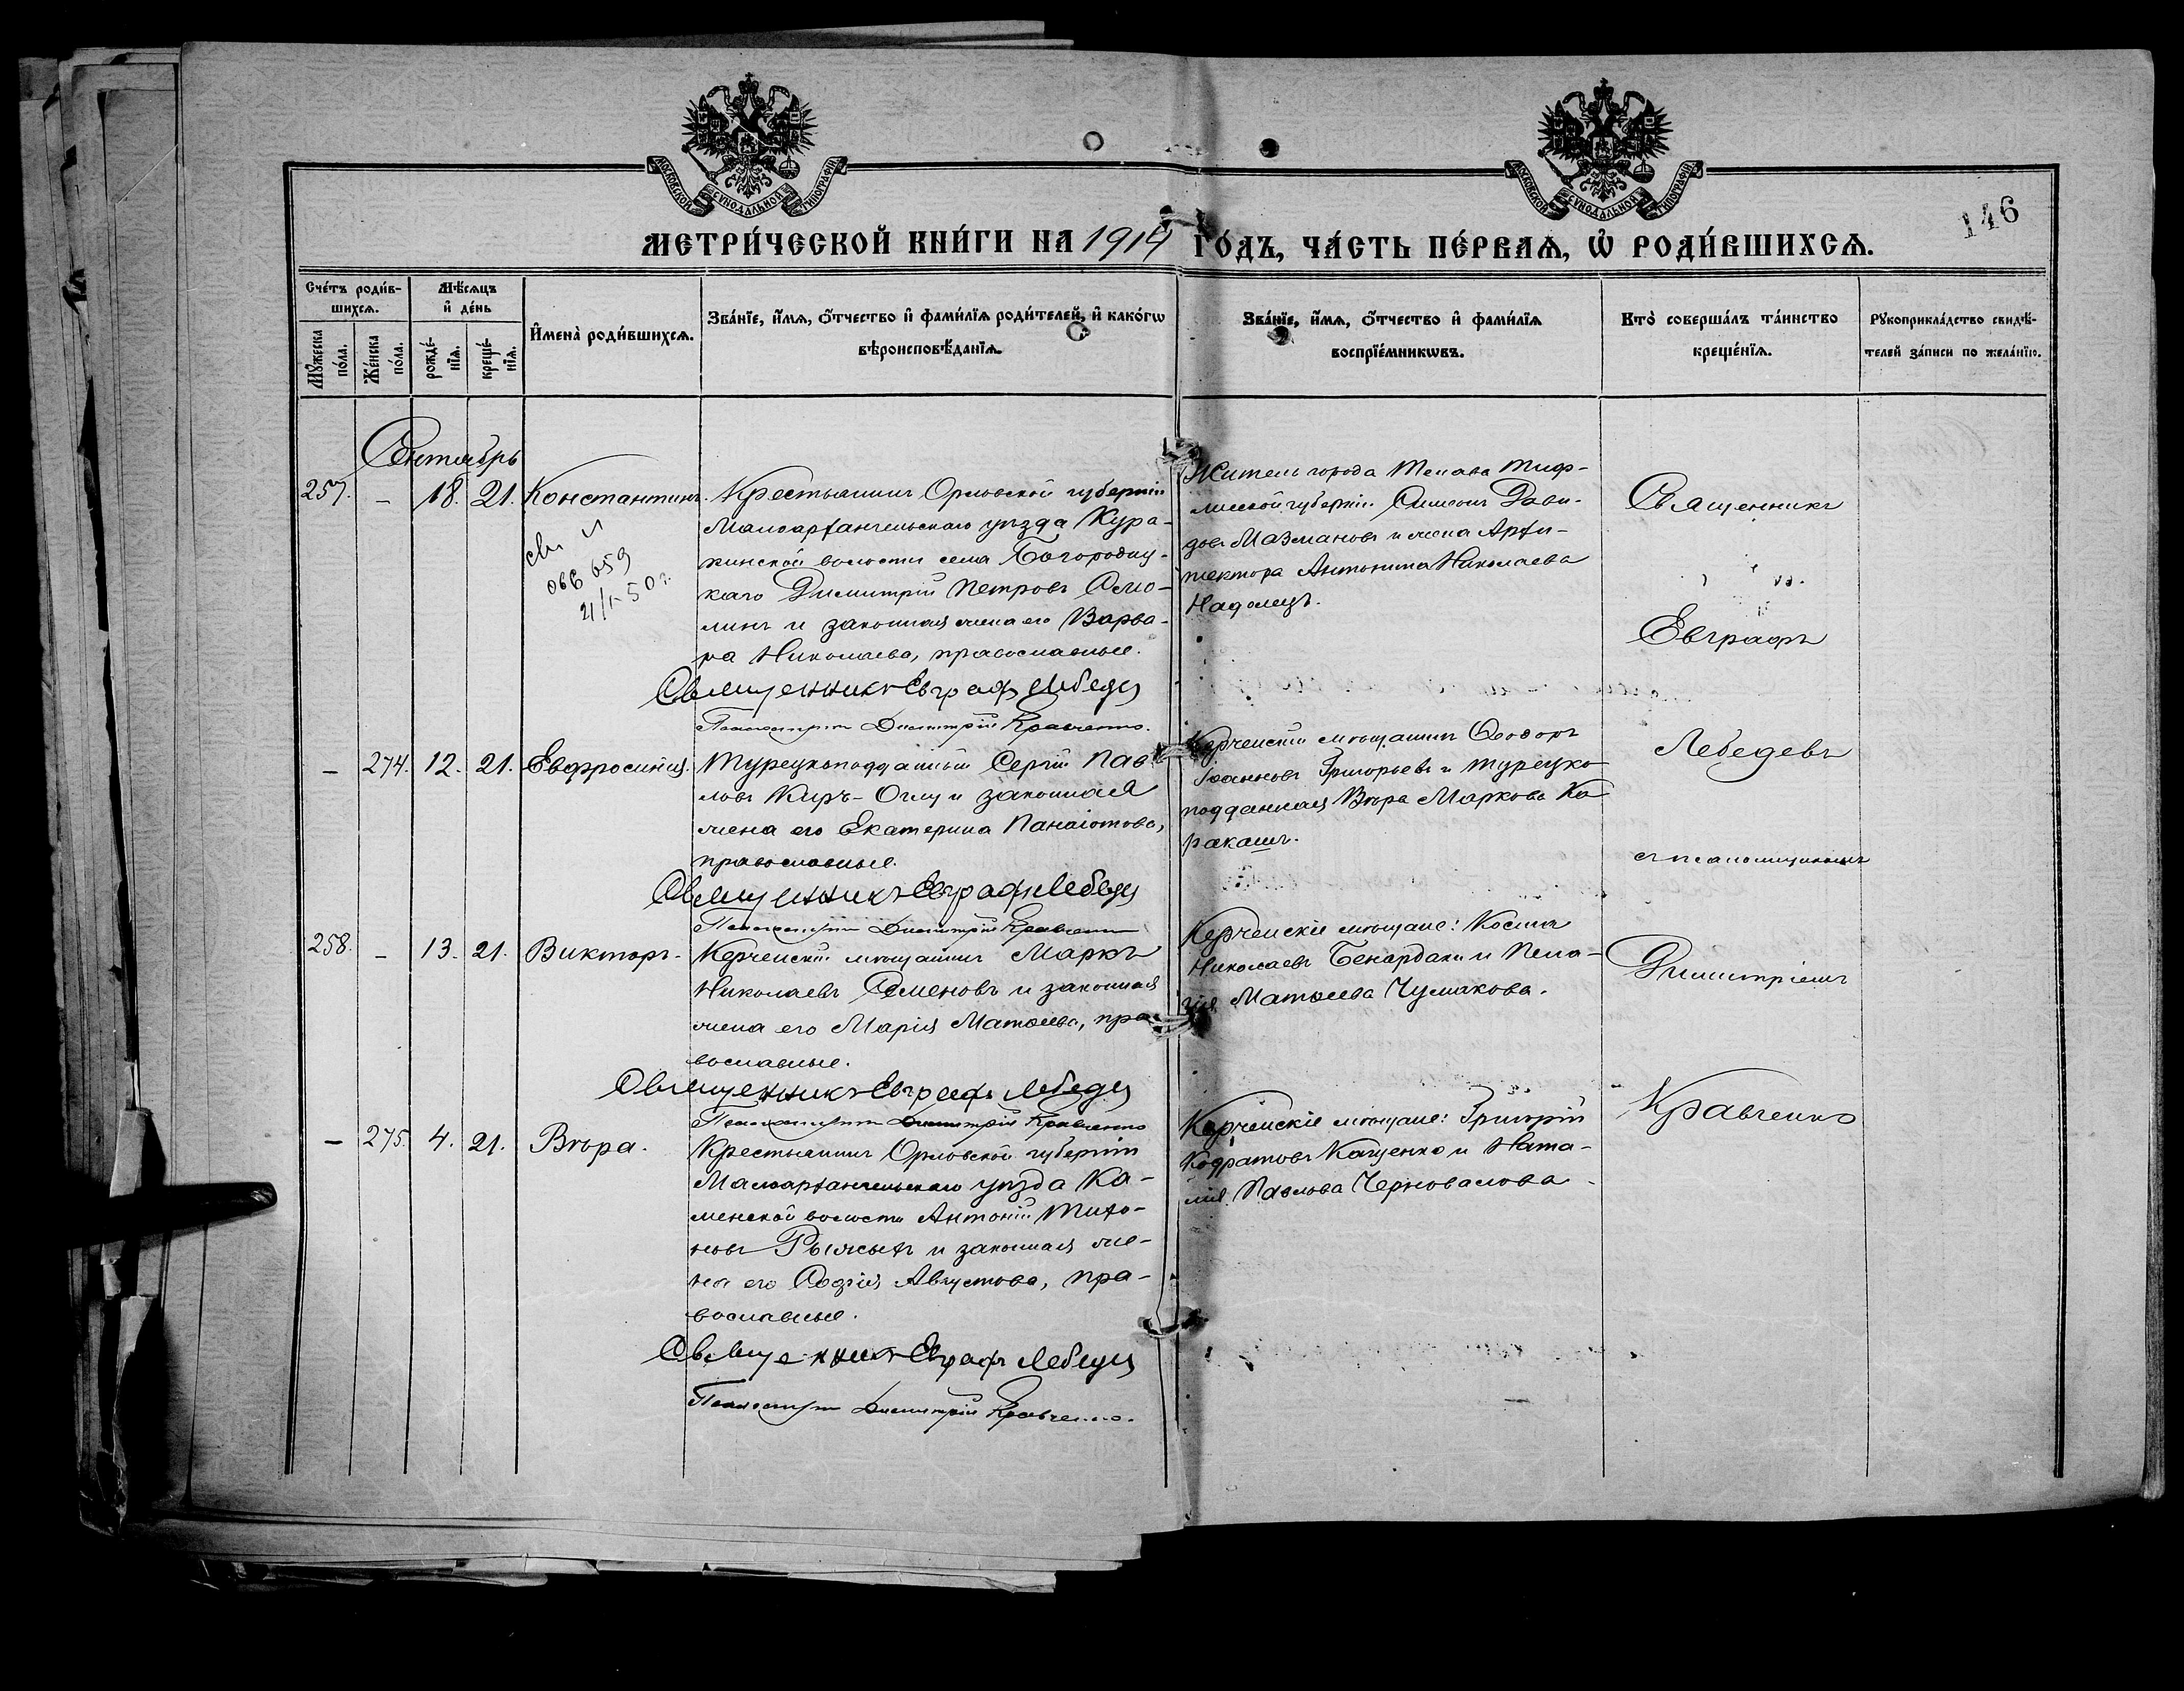 МОСКОВСКОЙ СѴНОДАЛЬНОЙ ТИПОГРАФІИ
МОСКОВСКОЙ СѴНОДАЛЬНОЙ ТИПОГРАФІИ
146
МЕТРИ́ЧЕСКОЙ КНИ́ГИ НА 1914 ГО́ДЪ, ЧА́СТЬ ПЕ́РВАѦ, Ѡ҆ РОДИ́ВШИХСѦ.
Сче́тъ роди́в-
шихсѧ.
Мѣ́сѧцъ
и҆ де́нь
Мꙋ́жеска по́ла.
Же́нска по́ла.
рожде́-
нїѧ.
креще́-
нїѧ.
И҆мена̀ роди́вшихсѧ.
Зва́нїе, и҆́мѧ, о҆́тчество и҆ фами́лїѧ роди́телей, и҆ како́гѡ
вѣроисповѣ́данїѧ.
Зва́нїе, и҆́мѧ, о҆́тчество и҆ фами́лїѧ
воспрїе́мникѡвъ.
Кто̀ соверша́лъ та́инство
креще́нїѧ.
Рꙋкоприкла́дство свидѣ́-
телей за́писи по жела́нїю.
Сентябрь
257. – 18. 21. Константинъ.
Крестьянинъ Орловской губерніи
Малоархангельскаго уѣзда Кура-
кинской волости села Богородиц-
каго Димитрій Петровъ Само-
линъ и законная жена его Варва-
ра Николаева, православные.
Священникъ Евграфъ Лебедев
Псаломщикъ Димитрій Кравченко.
059
21/I-50 г.
Житель города Телава Тиф-
лисской губерніи Симеонъ Дави-
довъ Мазмановъ и жена Архи-
тектора Антонина Николаева
Надолецъ.
Священникъ
Евграфъ
Лебедевъ
съ псаломщикомъ
Димитріемъ
Кравченко
– 274. 12. 21. Евфросинія.
Турецкоподданный Сергій Пав-
ловъ Киръ-Оглу и законная
жена его Екатерина Панаіотова,
православные.
Священникъ Евграфъ Лебедев
Псаломщикъ Димитрій Кравченко
Керченскій мѣщанинъ Ѳеодоръ
Іоанновъ Григорьевъ и турецко-
подданная Вѣра Маркова Ка-
ракашъ.
258. – 13. 21. Викторъ.
Керченскій мѣщанинъ Маркъ
Николаевъ Семеновъ и законная
жена его Марія Матѳеева, пра-
вославные.
Священникъ Евграфъ Лебедев
Псаломщикъ Димитрій Кравченко
Керченскіе мѣщане: Косма
Николаевъ Бенардаки и Пела-
гія Матѳеева Чумакова.
– 275. 4. 21. Вѣра.
Крестьянинъ Орловской губерніи
Малоархангельскаго уѣзда Ка-
менской волости Антоній Тихо-
новъ Рыжихъ и законная же-
на его Софія Августова, пра-
вославные.
Священникъ Евграфъ Лебедев
Псаломщикъ Димитрій Кравченко.
Керченскіе мѣщане: Григорій
Кодратовъ Кащенко и Ната-
лія Павлова Черновалова.